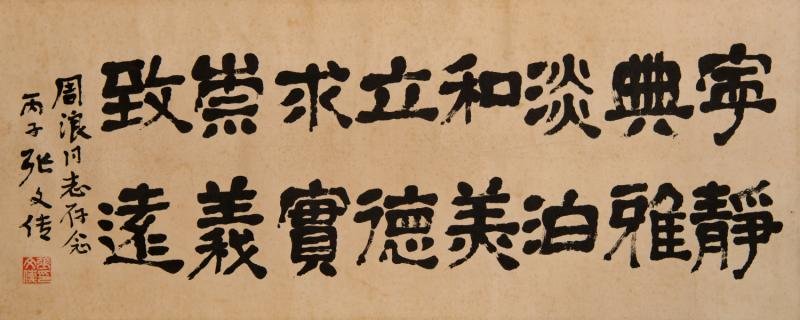 寧靜
典雅
淡泊
和美
立德
求實
崇義
致遠
周浪同志存念
丙子 張文倩